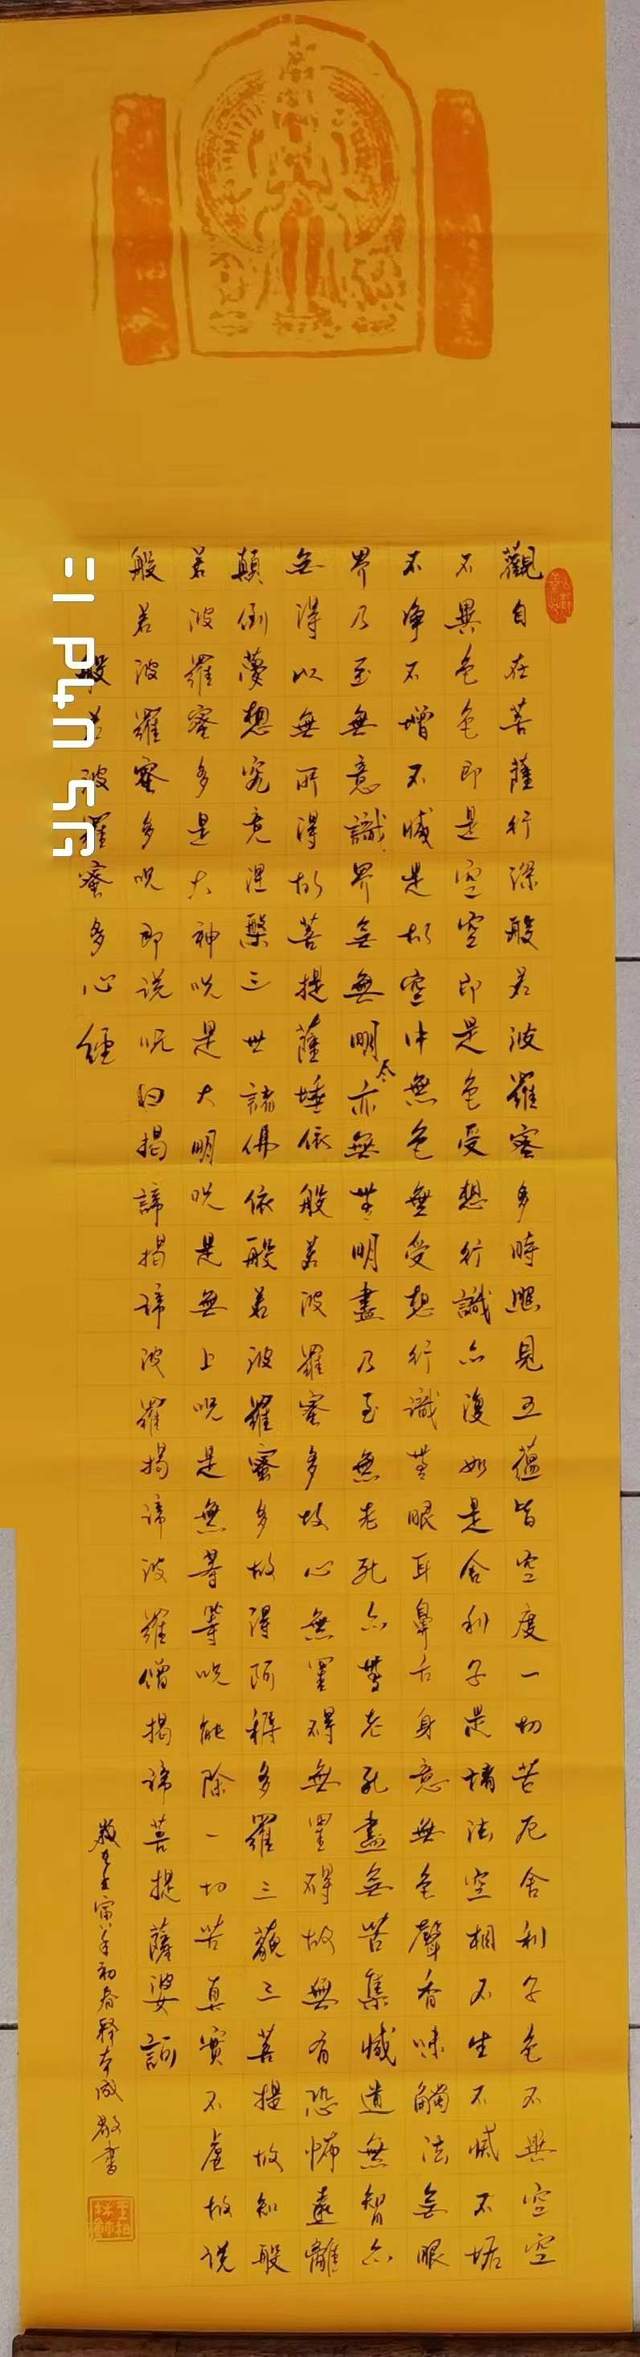 觀自在菩薩行深般若波羅蜜多時照見五蘊皆空度一切苦厄舍利子色不異空空
不異色色即是空空即是色受想行識亦復如是舍利子是諸法空相不生不滅不垢
不淨不增不減是故空中無色無受想行識無眼耳鼻舌身意無色聲香味觸法無眼
界乃至無意識界無無明亦無無明盡乃至無老死亦無老死盡無苦集滅道無智亦
無得以無所得故菩提薩埵依般若波羅蜜多故心無罣礙無罣礙故無有恐怖遠離
顛倒夢想究竟涅槃三世諸佛依般若波羅蜜多故得阿耨多羅三藐三菩提故知般
若波羅蜜多是大神呪是大明呪是無上呪是無等等呪能除一切苦真實不虛故说
般若波羅蜜多呪即说呪曰揭諦揭諦波羅揭諦波羅僧揭諦菩提薩婆訶
般若波羅蜜多心經
歲壬寅年初春释本成敬書